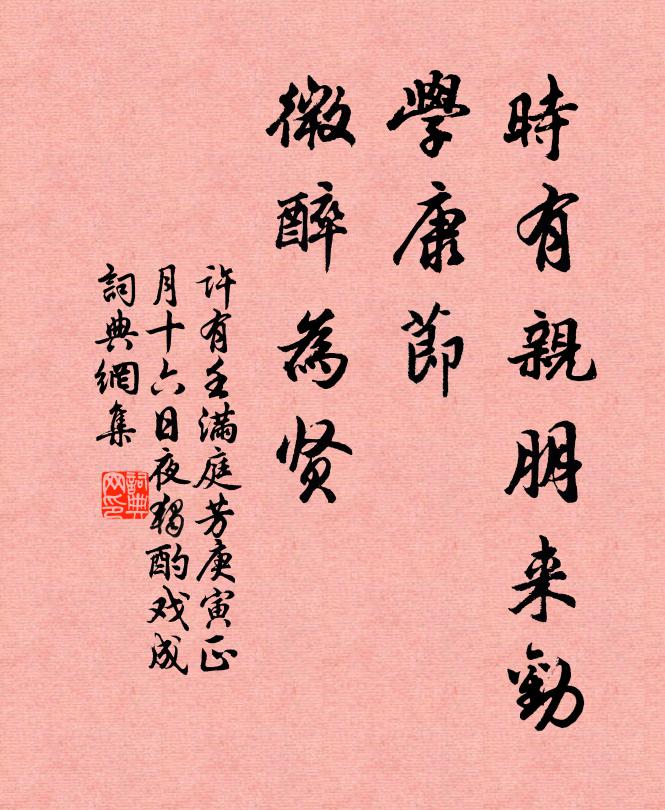 時有親朋来勸
學康節
微醉為贤
许有壬满庭芳庚寅正
月十六日夜独酌戏成
詞典網集
詞典
网印